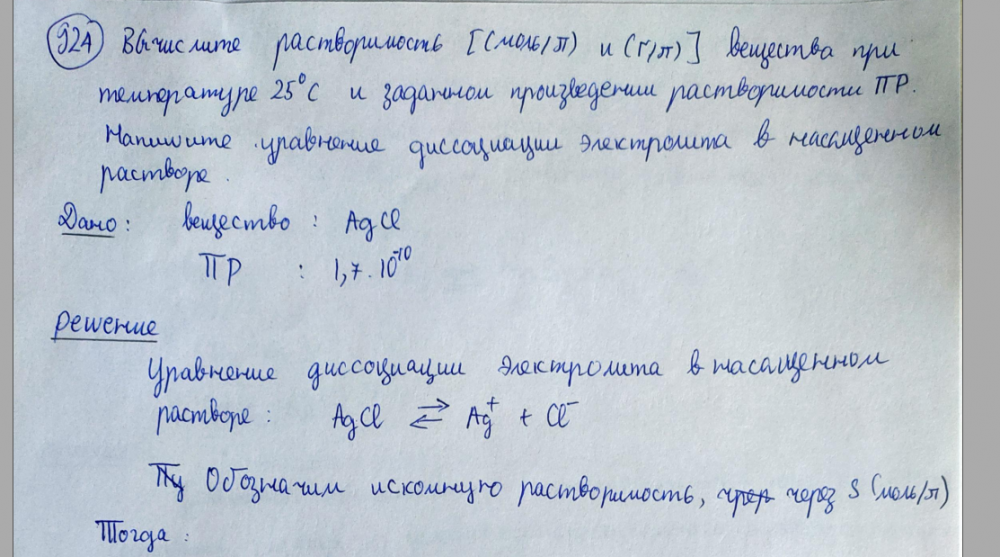 924 Вычислите растворимость [(моль/л) и (г/л)] вещества при
температуре 25°C и заданном произведении растворимости ПР.
Напишите уравнение диссоциации электролита в насащенном
растворе.
Дано: вещество : AgCl
ПР : 1,7·10⁻¹⁰
Решение
Уравнение диссоциации электролита в насащенном
растворе: AgCl ⇌ Ag⁺ + Cl⁻
Обозначим искомную растворимость, через S (моль/л)
Тогда: